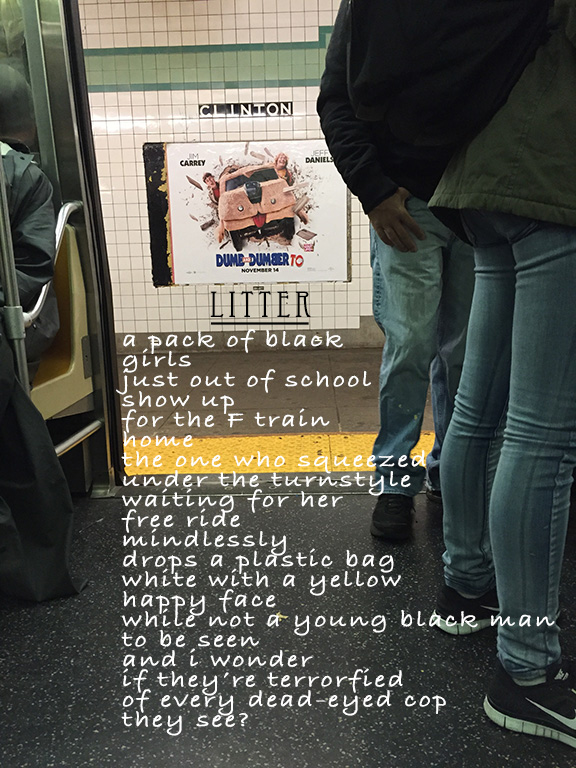 CLINTON
JIM
CARREY
JEFF
DANIELS
DUMB AND DUMBER TO
NOVEMBER 14
LITTER
a pack of black
girls
just out of school
show up
for the F train
home
the one who squeezed
under the turnstyle
waiting for her
free ride
mindlessly
drops a plastic bag
white with a yellow
happy face
while not a young black man
to be seen
and i wonder
if they're terrorfied
of every dead-eyed cop
they see?